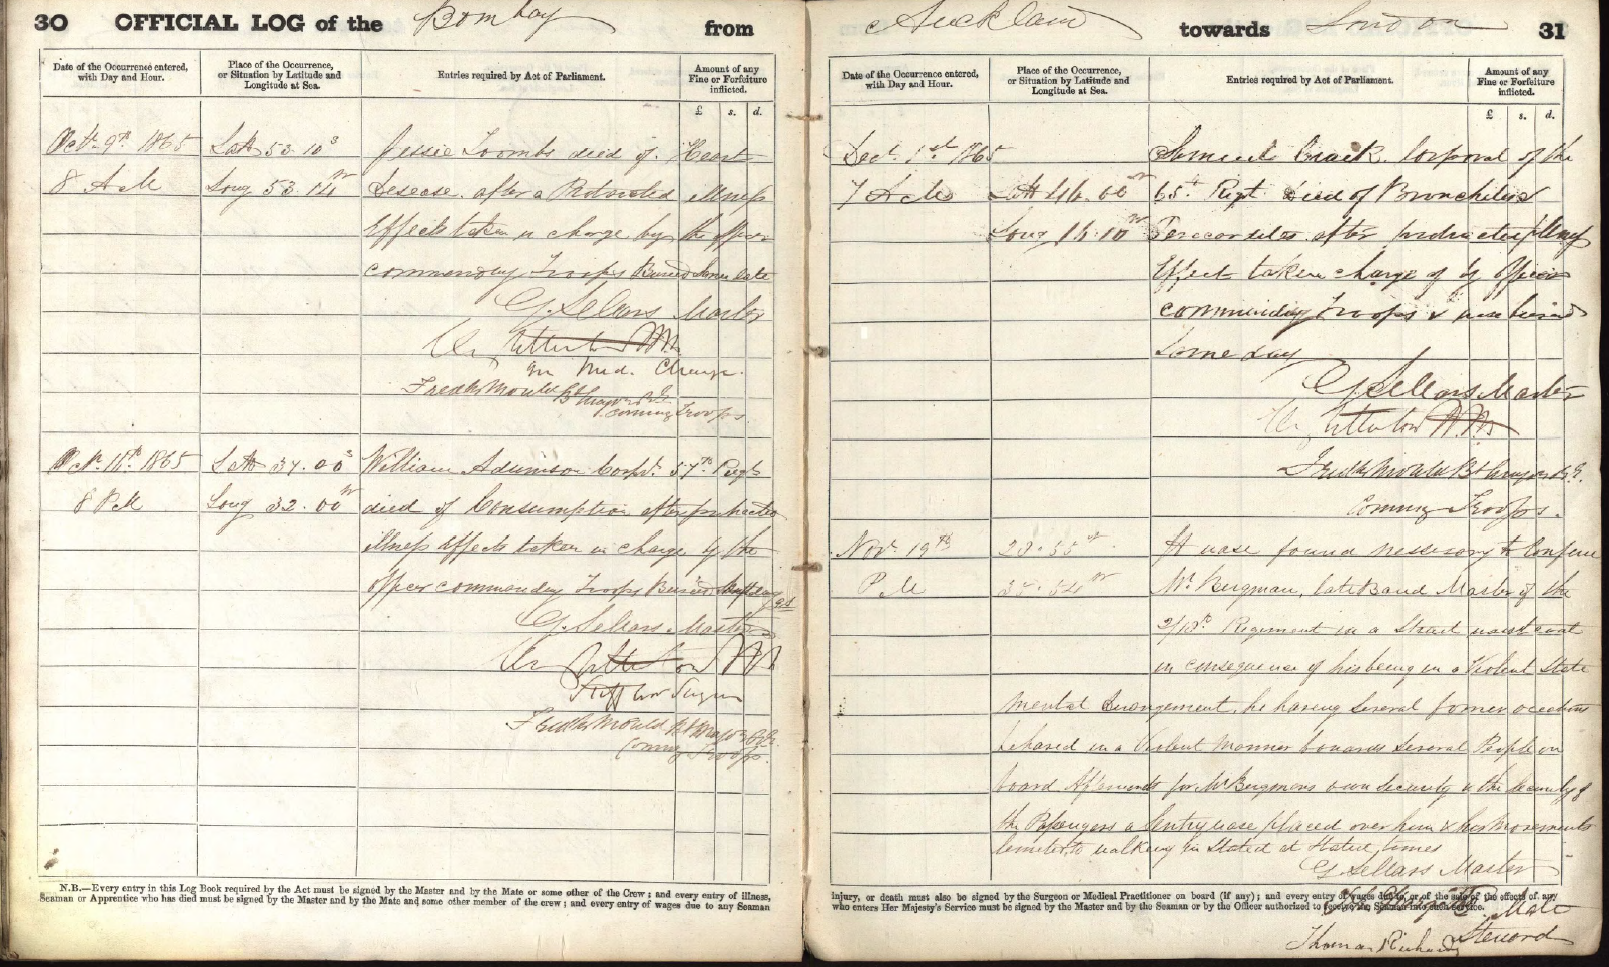 30 OFFICIAL LOG of the Bombay from
Date of the Occurrence entered, with Day and Hour.
Place of the Occurrence, or Situation by Latitude and Longitude at Sea.
Entries required by Act of Parliament.
Amount of any Fine or Forfeiture inflicted.
£ s. d.
Octr 9th 1865 Latt 53.10 S Jessie Toombs died of Heart
8 A M Long 53.14 W Desease after a Protracted illness
Effects taken in charge by the officer
commanding Troops Buried same date
G. Sellars Master
in Med. Charge.
Fredk Mould Bt Major R.E.
Commg Troops.
Octr 18th 1865 Latt 37.00 S William Adamson Corpl. 57th Regt
8 P M Long 32.00 W died of Consumption after protracted
illness effects taken in charge by the
officer commanding Troops Buried
G. Sellars Master
Staff Asst Surgeon
Fredk Mould Bt Major R.E.
Commg Troops.
N.B.—Every entry in this Log Book required by the Act must be signed by the Master and by the Mate or some other of the Crew; and every entry of illness,
Seaman or Apprentice who has died must be signed by the Master and by the Mate and some other member of the crew; and every entry of wages due to any Seaman
Auckland towards London 31
Date of the Occurrence entered, with Day and Hour.
Place of the Occurrence, or Situation by Latitude and Longitude at Sea.
Entries required by Act of Parliament.
Amount of any Fine or Forfeiture inflicted.
£ s. d.
Dect. 1st 1865 Samuel Corporal of the
7 A M Latt 46.00 65th Rigt Died of Bronchitis
Long 16.10 W after protracted illness
Effect taken charge of by Officer
commanding Troops & was buried
same day
G Sellars Master
Fredk Mould Bt Major R.E.
Commg Troops.
Novr 19th It was found nessesary to Confine
P M Mr Bergman, late Band Master of the
Regiment in a Strait waist coat
in consequence of his being in a Violent State
Mental derangement, he having Several former occasions
behaved in a Violent Manner towards Several People on
board Afterwards for Mr Bergmans own Security & the Security of
the Passengers a Sentry was placed over him & his Movements
to walking in Stated at Stated times
G Sellars Master
injury, or death must also be signed by the Surgeon or Medical Practitioner on board (if any); and every entry of wages due to, or of the sale of the effects of, any
who enters Her Majesty's Service must be signed by the Master and by the Seaman or by the Officer authorized to receive the Seaman into such service.
Mate
Thomas Steward